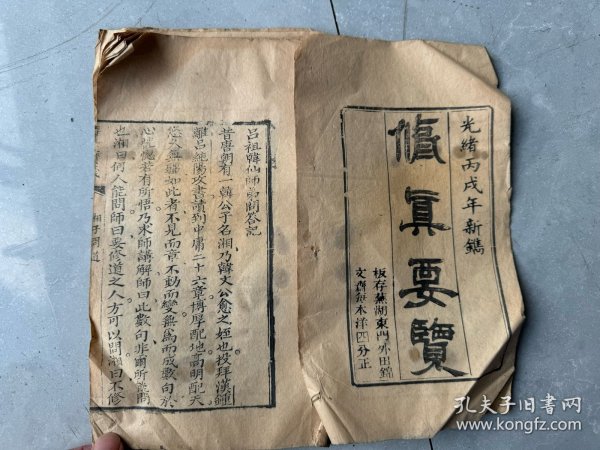 光緒丙戌年新鐫
脩真要覽
板存蕪湖東門外田錦
文齋每本洋四分正
呂祖韓仙師弟問答記
昔唐朝有一韓公子名湘乃韓文公愈之姪也投拜漢鍾
離呂純陽攻書讀到中庸二十六章博厚配地高明配天
悠久無疆如此者不見而章不動而變無為而成數句於
心恍惚若有所悟乃求師講解師曰此數句非爾所能問
也湘曰何人能問師曰要修道之人方可以問湘曰不修
湘子問道
孔夫子旧书网
www.kongfz.com